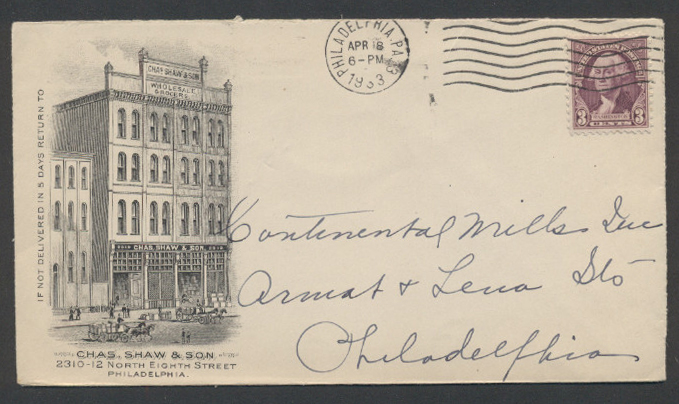 IF NOT DELIVERED IN 5 DAYS RETURN TO
CHAS. SHAW & SON
WHOLESALE
GROCERS
CHAS. SHAW & SON
CHAS. SHAW & SON
2310-12 NORTH EIGHTH STREET
PHILADELPHIA.
PHILADELPHIA, PA.
APR 18
6-PM
1933
3 3
CENTS
Continental Mills Inc
Armat & Lena Sts
Philadelphia